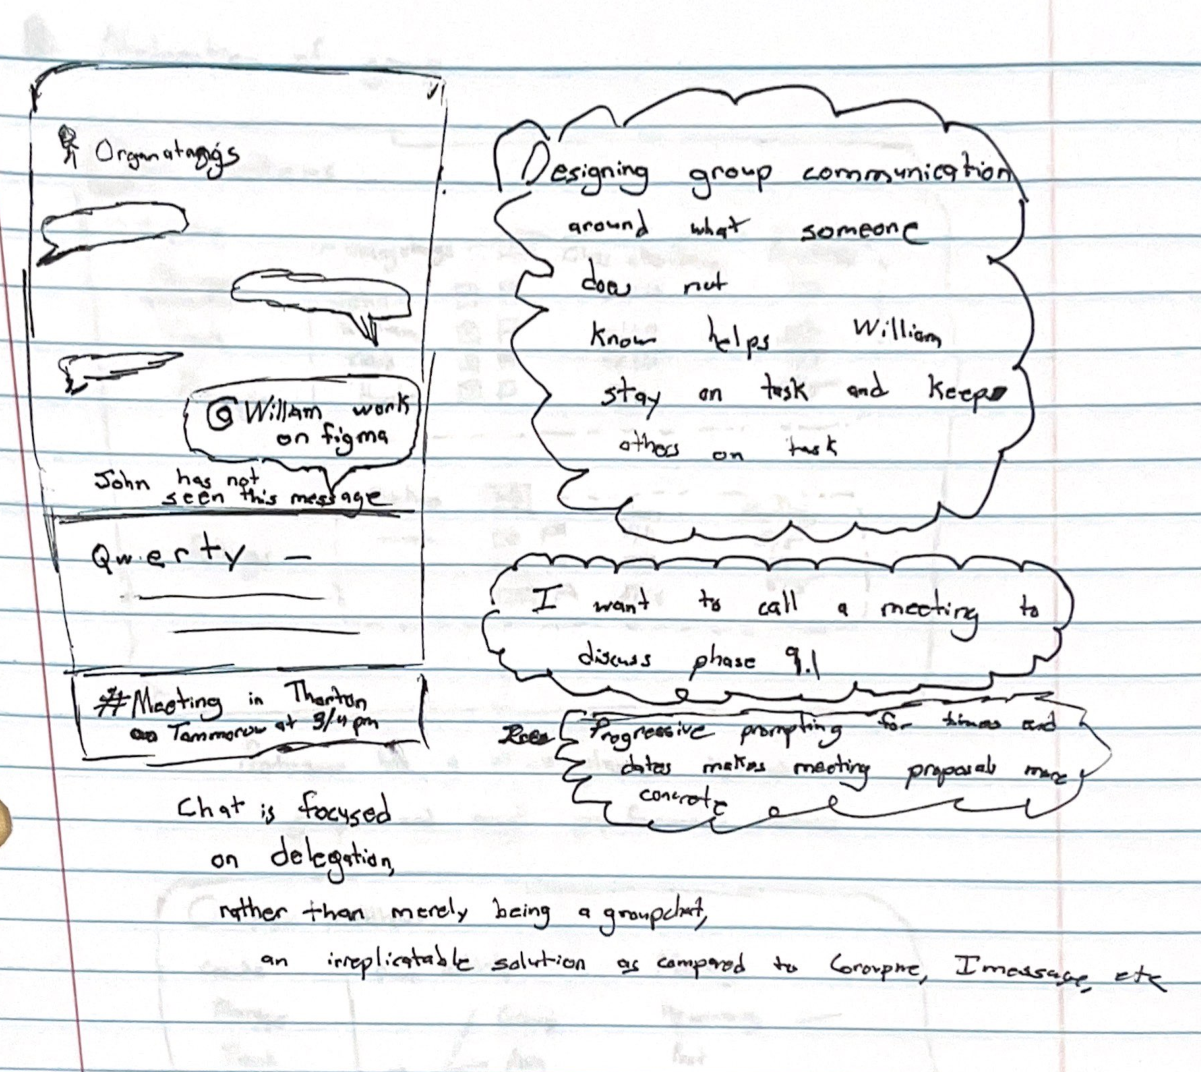 @ Willam work
on figma
John has not
seen this message
Qwerty
#Meeting in Thorton
Tommorow at 3/4pm
Designing group communication
around what someone
does not
know helps William
stay on task and keeps
others on task
I want to call a meeting to
discuss phase 9.1
Progressive prompting for times and
dates makes meeting proposals more
concrete
Chat is focused
on delegation,
rather than merely being a groupchat,
an irreplicatable solution as compared to Imessage, etc